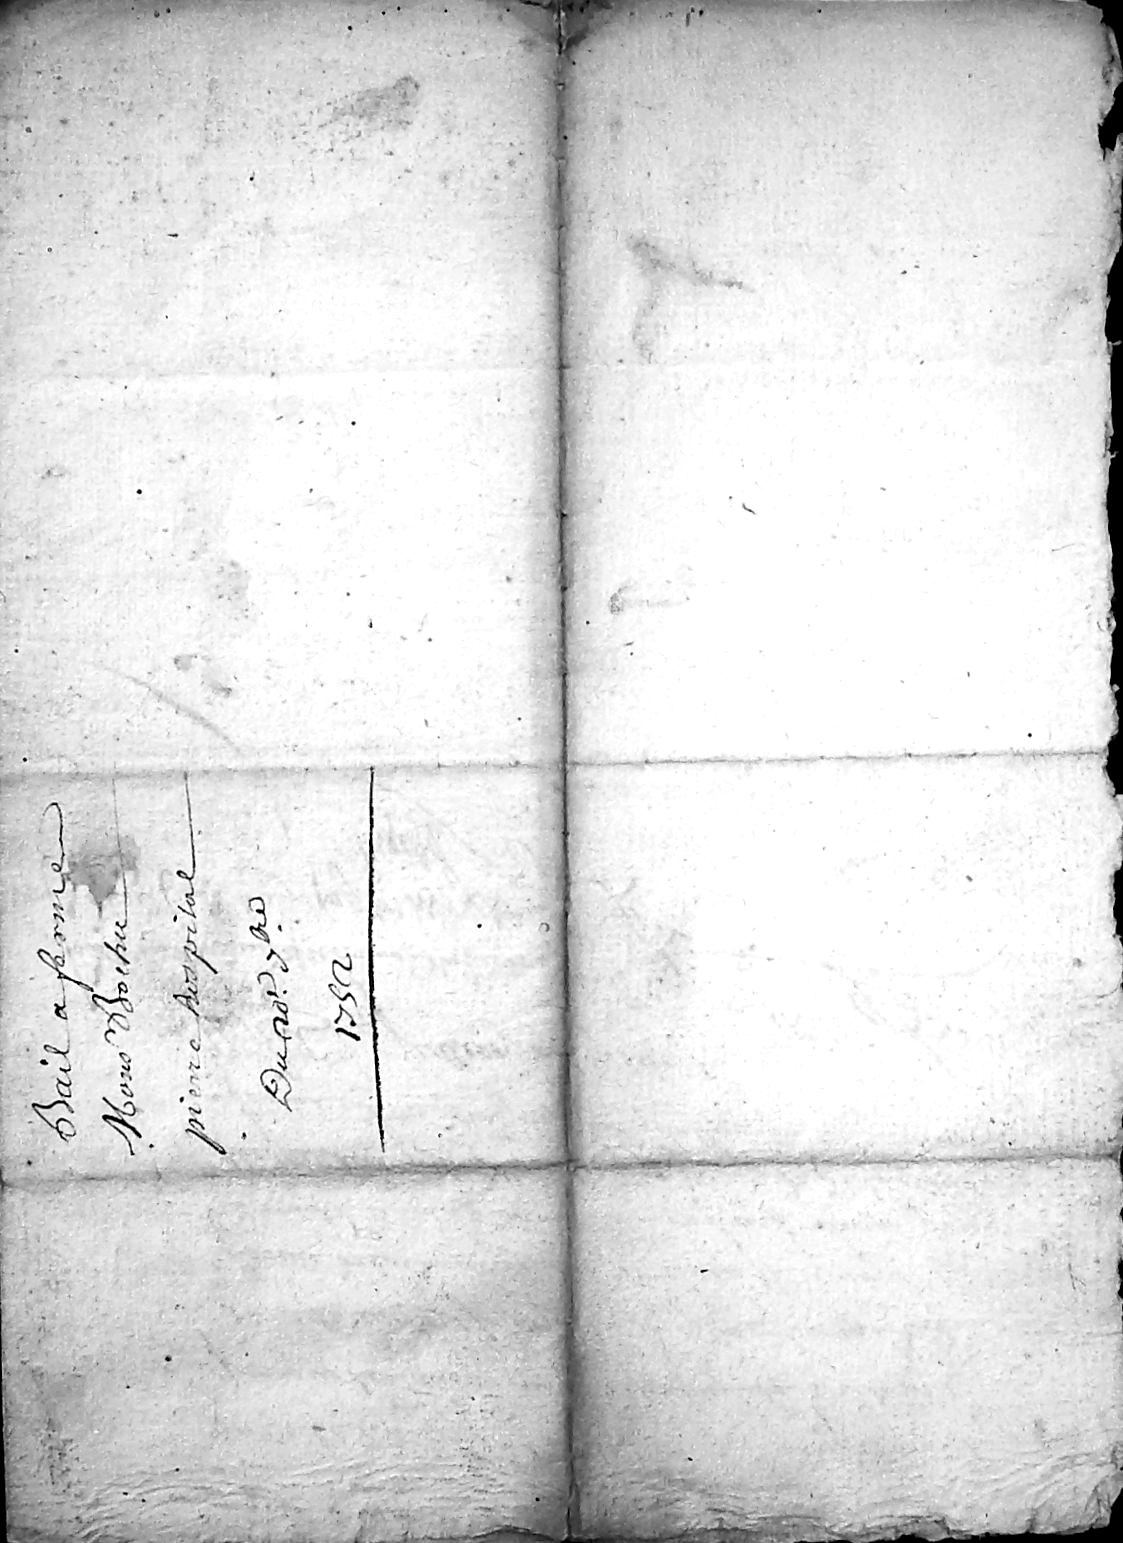 Bail a ferme
Mons Bochu
pierre hospital
Du 20e 7bre
1752